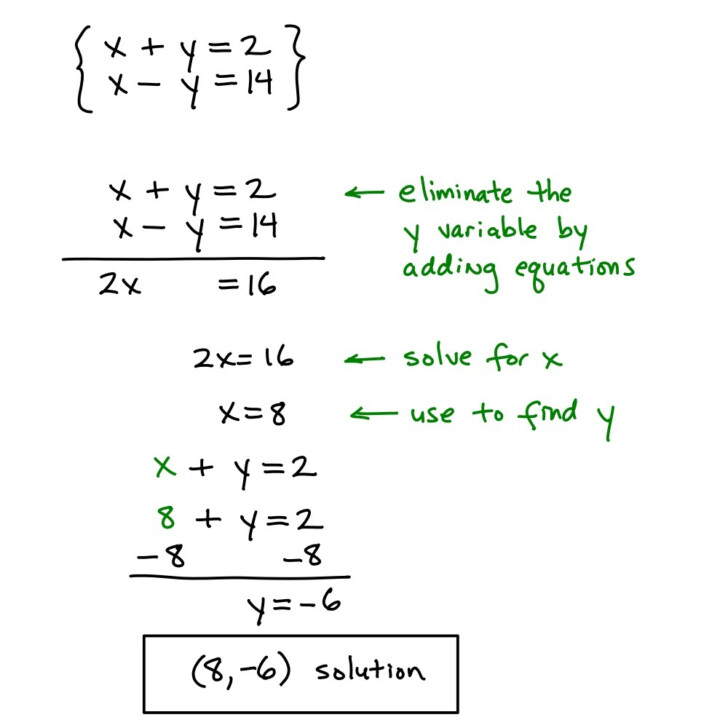 { x + y = 2 }
{ x - y = 14 }
x + y = 2 ← eliminate the
x - y = 14 y variable by
2x = 16 adding equations
2x = 16 ← solve for x
x = 8 ← use to find y
x + y = 2
8 + y = 2
-8 -8
y = -6
(8, -6) solution